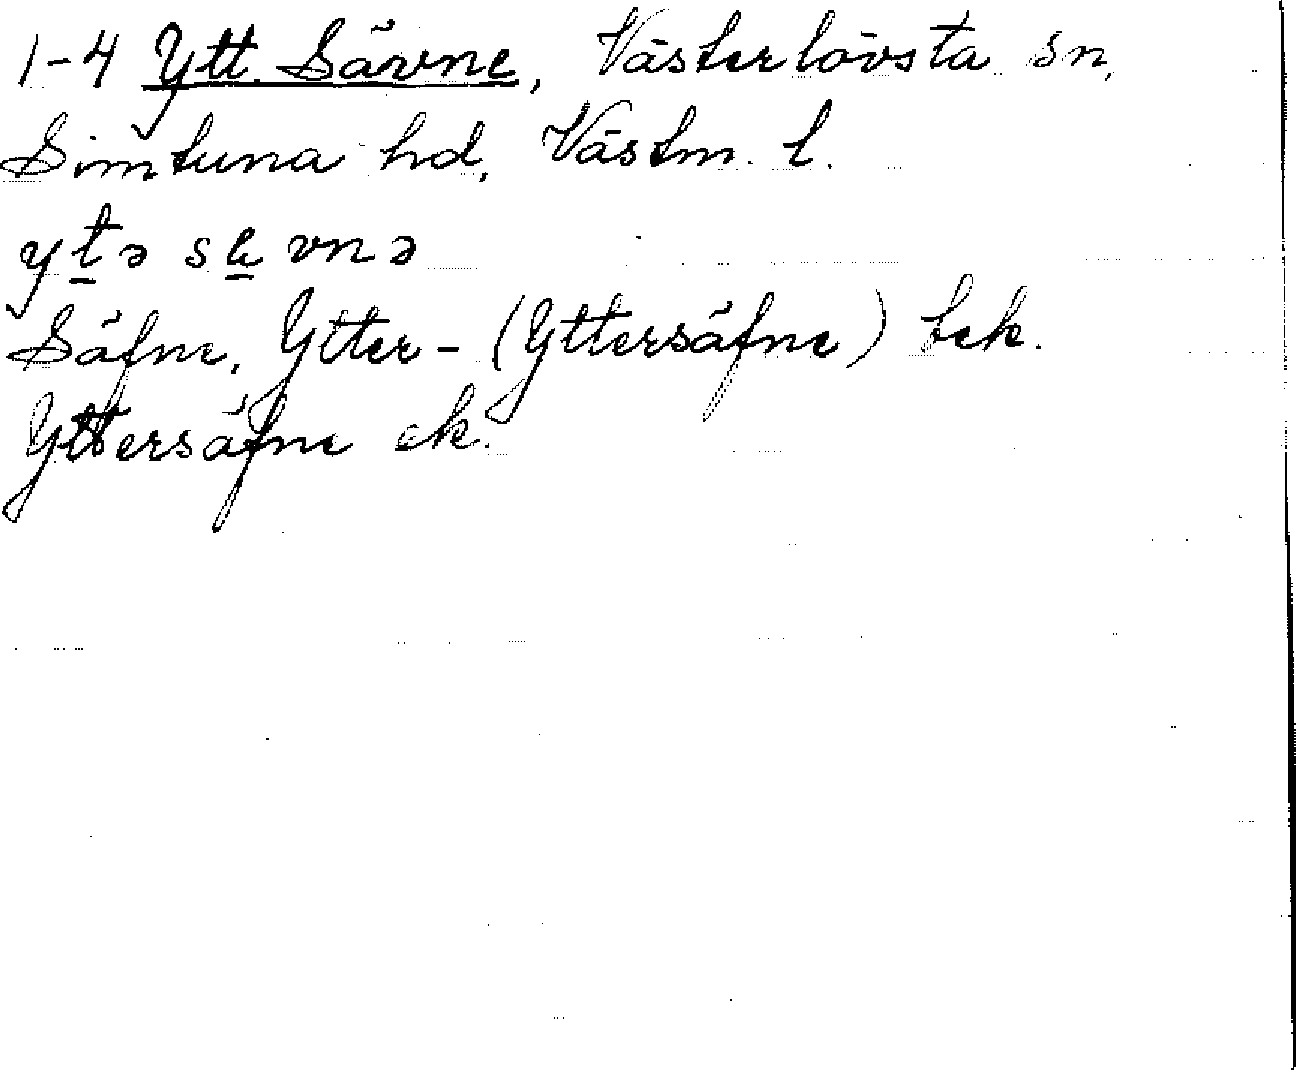 1-4 Ytt. Sävne, Västerlövsta sn,
Simtuna hd, Västm. l.
ytə sä vnə
Säfne, Ytter- (Yttersäfne) bek.
Yttersäfne ek.